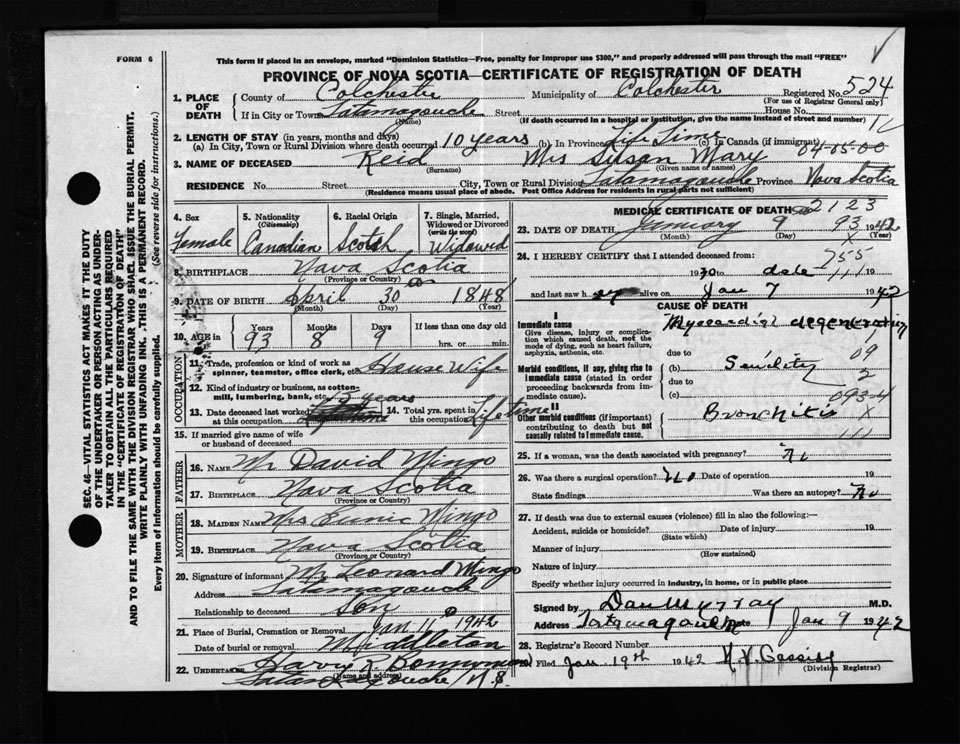 FORM 6
This form if placed in an envelope, marked "Dominion Statistics—Free, penalty for improper use $300," and properly addressed will pass through the mail "FREE"
PROVINCE OF NOVA SCOTIA—CERTIFICATE OF REGISTRATION OF DEATH
1. PLACE OF DEATH County of Colchester Municipality of Colchester Registered No. 524
(For use of Registrar General only)
If in City or Town Tatamagouche Street House No.
(Name) (If death occurred in a hospital or institution, give the name instead of street and number)
2. LENGTH OF STAY (in years, months and days)
(a) In City, Town or Rural Division where death occurred 10 years (b) In Province Life Time (c) In Canada (if immigrant)
3. NAME OF DECEASED Reid Mrs Susan Mary
(Surname) (Given name or names)
RESIDENCE No. Street City, Town or Rural Division Tatamagouche Province Nova Scotia
(Residence means usual place of abode. Post Office Address for residents in rural parts not sufficient)
4. Sex Female
5. Nationality (Citizenship) Canadian
6. Racial Origin Scotch
7. Single, Married, Widowed or Divorced (write the word) Widowed
8. BIRTHPLACE Nova Scotia
(Province or Country)
9. DATE OF BIRTH April 30 1848
(Month) (Day) (Year)
10. AGE in Years 93 Months 8 Days 9 If less than one day old hrs. or min.
OCCUPATION
11. Trade, profession or kind of work as spinner, teamster, office clerk, etc. House Wife
12. Kind of industry or business, as cotton-mill, lumbering, bank, etc.
13. Date deceased last worked at this occupation
14. Total yrs. spent in this occupation Lifetime
15. If married give name of wife or husband of deceased
FATHER
16. NAME Mr David Mingo
17. BIRTHPLACE Nova Scotia
(Province or Country)
MOTHER
18. MAIDEN NAME Mrs Mingo
19. BIRTHPLACE Nova Scotia
(Province or Country)
20. Signature of informant Mr Leonard Mingo
Address Tatamagouche
Relationship to deceased Son
21. Place of Burial, Cremation or Removal Jan 11 1942
Date of burial or removal Middleton
22. UNDERTAKER Harry J Bonnyman
(Name and address)
Tatamagouche N.S.
MEDICAL CERTIFICATE OF DEATH 2123
23. DATE OF DEATH January 9 1942
(Month) (Day) (Year)
24. I HEREBY CERTIFY that I attended deceased from:
19 to date 19
and last saw h er alive on Jan 7 1942
CAUSE OF DEATH
I
Immediate cause
Give disease, injury or complication which caused death, not the mode of dying, such as heart failure, asphyxia, asthenia, etc.
Myocardial degeneration
due to
Morbid conditions, if any, giving rise to immediate cause (stated in order proceeding backwards from immediate cause).
(b) Senility
due to
(c)
II
Other morbid conditions (if important) contributing to death but not causally related to immediate cause.
Bronchitis
25. If a woman, was the death associated with pregnancy? No
26. Was there a surgical operation? No Date of operation 19
State findings Was there an autopsy? No
27. If death was due to external causes (violence) fill in also the following:—
Accident, suicide or homicide? Date of injury 19
(State which)
Manner of injury
(How sustained)
Nature of injury
Specify whether injury occurred in industry, in home, or in public place
Signed by Dan Murray M.D.
Address Tatamagouche Date Jan 9 1942
28. Registrar's Record Number
29. Filed Jan 19th 1942
(Division Registrar)
SEC. 46—VITAL STATISTICS ACT MAKES IT THE DUTY OF THE UNDERTAKER OR PERSON ACTING AS UNDERTAKER TO OBTAIN ALL THE PARTICULARS REQUIRED IN THE "CERTIFICATE OF REGISTRATION OF DEATH" AND TO FILE THE SAME WITH THE DIVISION REGISTRAR WHO SHALL ISSUE THE BURIAL PERMIT.
WRITE PLAINLY WITH UNFADING INK. THIS IS A PERMANENT RECORD.
Every item of information should be carefully supplied. (See reverse side for instructions.)